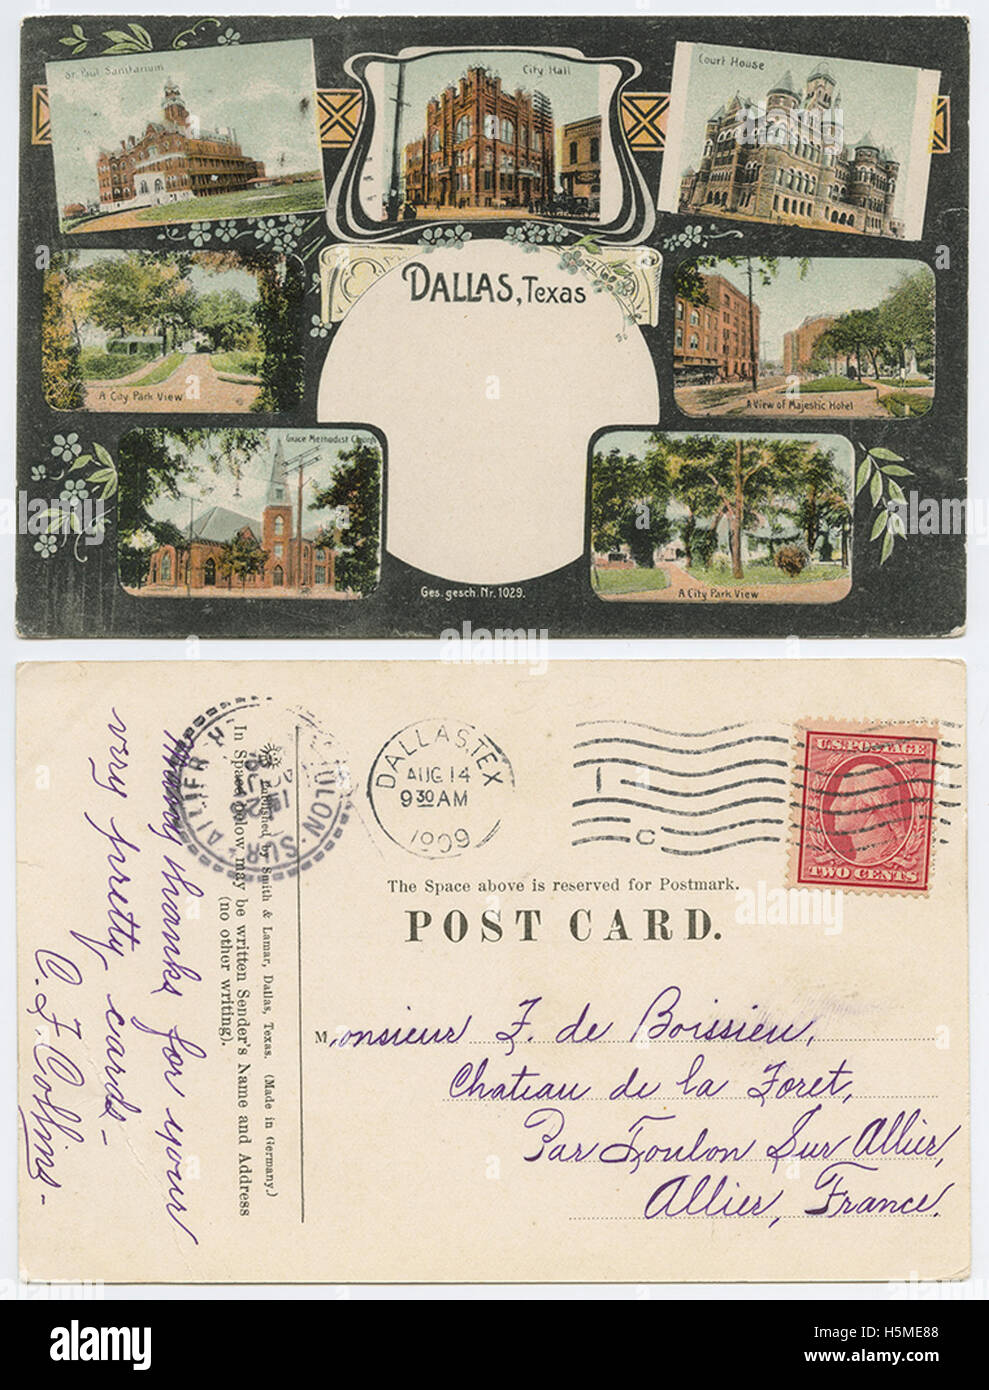 St. Paul Sanitarium
City Hall
Court House
DALLAS, Texas
A City Park View
A View of Majestic Hotel
Grace Methodist Church
A City Park View
Ges. gesch. Nr. 1029.
DALLAS, TEX
AUG 14
9 30 AM
1909
C
U.S. POSTAGE
TWO CENTS
The Space above is reserved for Postmark.
POST CARD.
Monsieur F. de Boissieu,
Chateau de la Foret,
Par Toulon Sur Allier,
Allier, France.
Published by Smith & Lamar, Dallas, Texas. (Made in Germany.)
In Space below may be written Sender's Name and Address
(no other writing).
Many thanks for your
very pretty cards -
C. F. Collins -
TOULON-SUR-ALLIER
alamy
Image ID: H5ME88
www.alamy.com